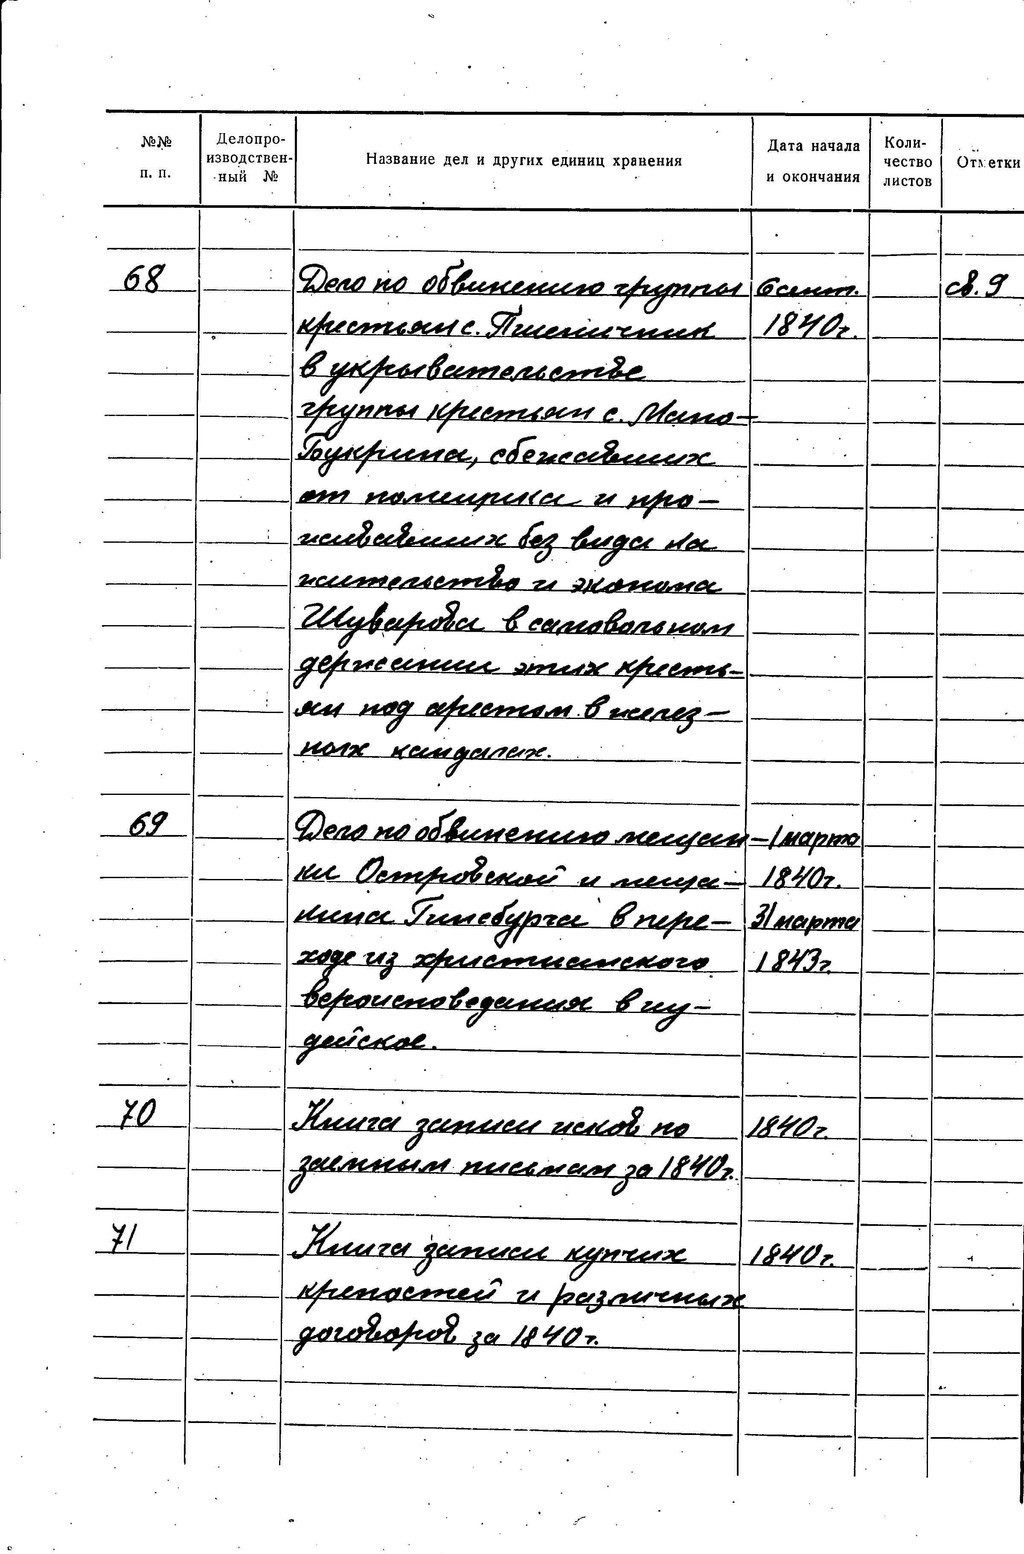 №№ п. п. Делопроизводственный № Название дел и других единиц хранения Дата начала и окончания Количество листов Отметки
68 Дело по обвинению группы 6 сент. св. 9
крестьян с. Пшеничник 1840г.
в укрывательстве
группы крестьян с. Мало-
Букрина, сбежавших
от помещика и про-
живавших без вида на
жительство и эконома
Шуварова в самовольном
держании этих кресть-
ян под арестом в желез-
ных кандалах.
69 Дело по обвинению мещан- 1 марта
ки Островской и меща- 1840г.
нина Гинсбурга в пере- 31 марта
ходе из христианского 1843г.
вероисповедания в иу-
дейское.
70 Книга записи исков по 1840г.
заемным письмам за 1840г.
71 Книга записи купчих 1840г.
крепостей и различных
договоров за 1840г.